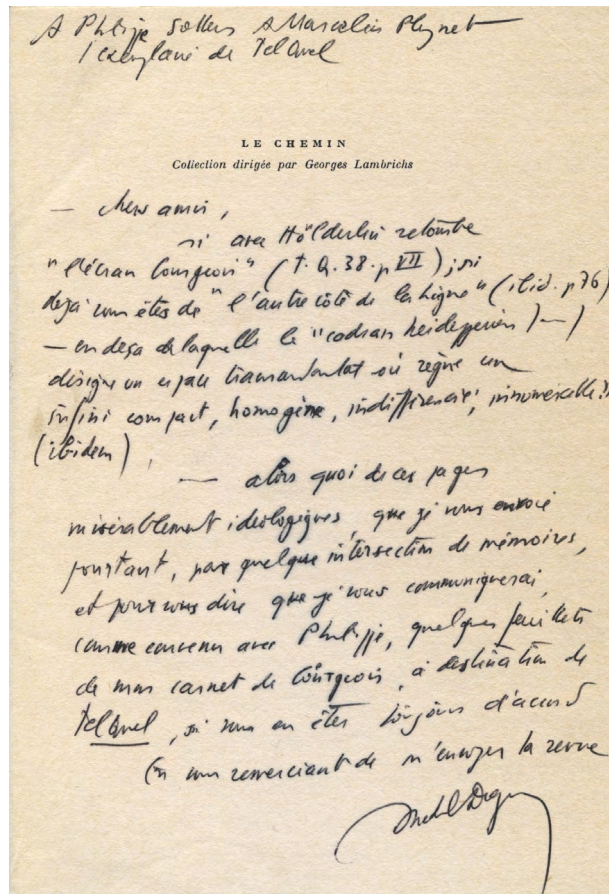 A Philippe Sollers A Marcelin Pleynet
l'exemplaire de Tel Quel
LE CHEMIN
Collection dirigée par Georges Lambrichs
— Chers amis,
si avec Hölderlin retombe
"l'écran bourgeois" (T.Q. 38. p VII) ; si
déjà vous êtes de "l'autre côté de la ligne" (ibid. p 76)
— en deça de laquelle le "cadran heideggerien (—)
désigne un espace où règne un
infini compact, homogène, indifférencié,
(ibidem),
— alors quoi de ces pages
misérablement idéologiques, que je vous envoie
pourtant, par quelque intersection de mémoires,
et pour vous dire que je vous communiquerai,
comme convenu avec Philippe, quelques feuillets
de mon carnet de bourgeois, à destination de
Tel Quel, si vous en êtes toujours d'accord
En vous remerciant de m'envoyer la revue
Michel Deguy